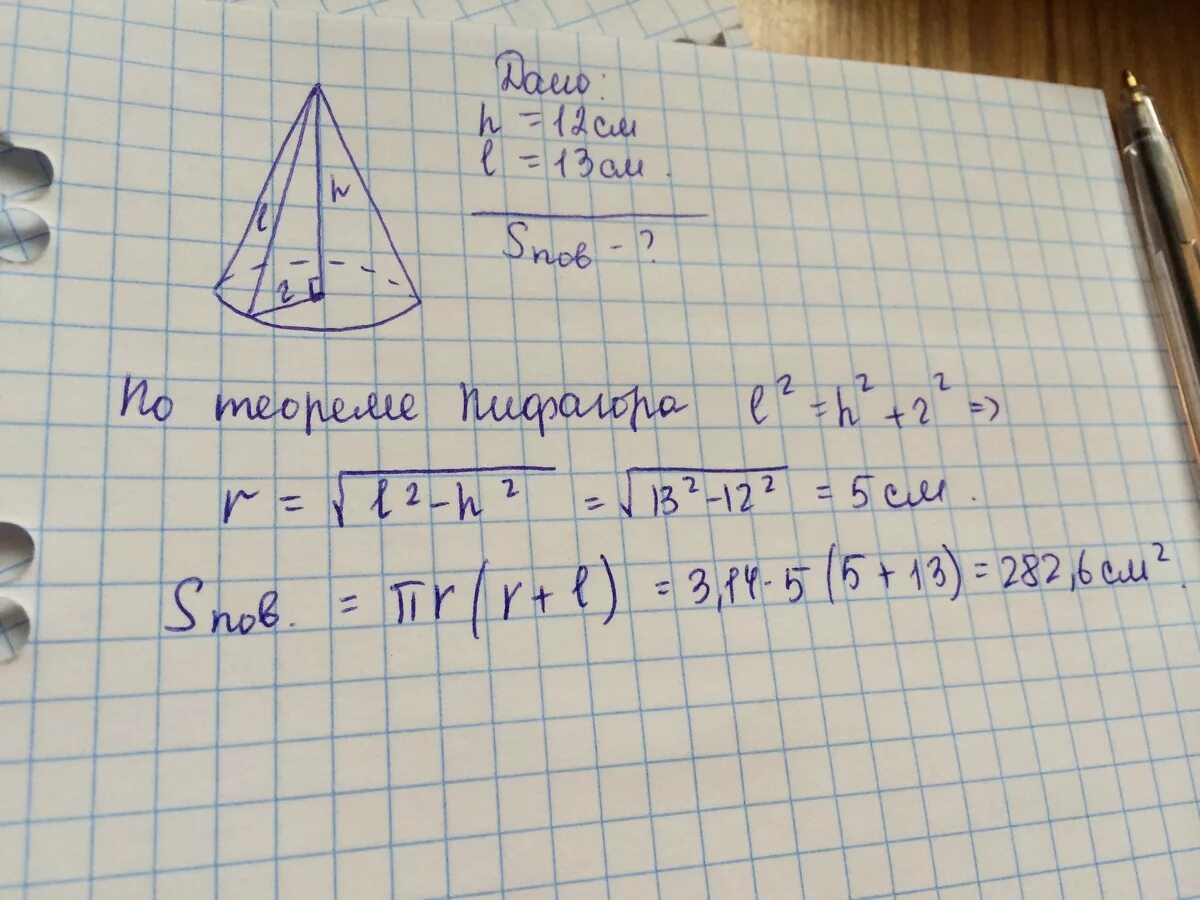 Дано:
h = 12 см
l = 13 см.
Sпов - ?
l
h
r
По теореме Пифагора l² = h² + r² =>
r = √(l² - h²) = √(13² - 12²) = 5 см.
Sпов. = πr(r + l) = 3,14 · 5 (5 + 13) = 282,6 см².